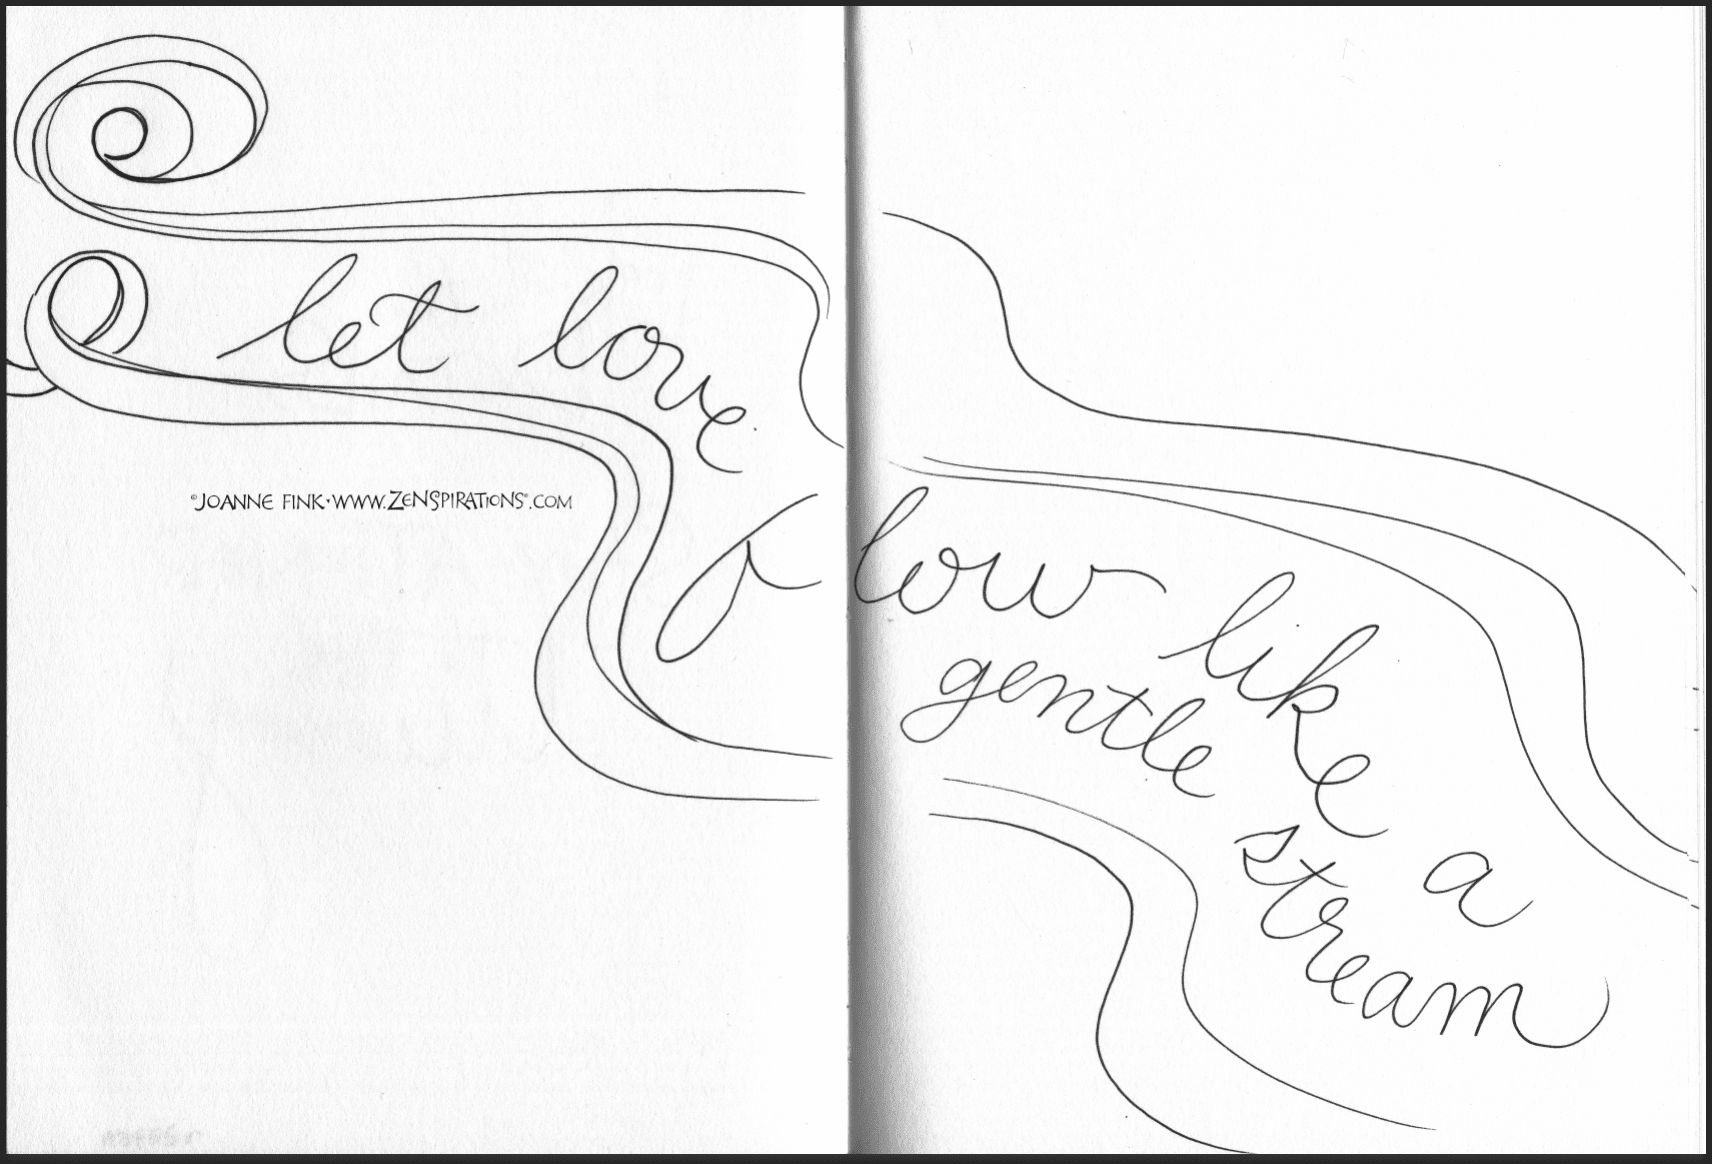 let love
flow like a
gentle stream
©JOANNE FINK·WWW.ZENSPIRATIONS®.COM